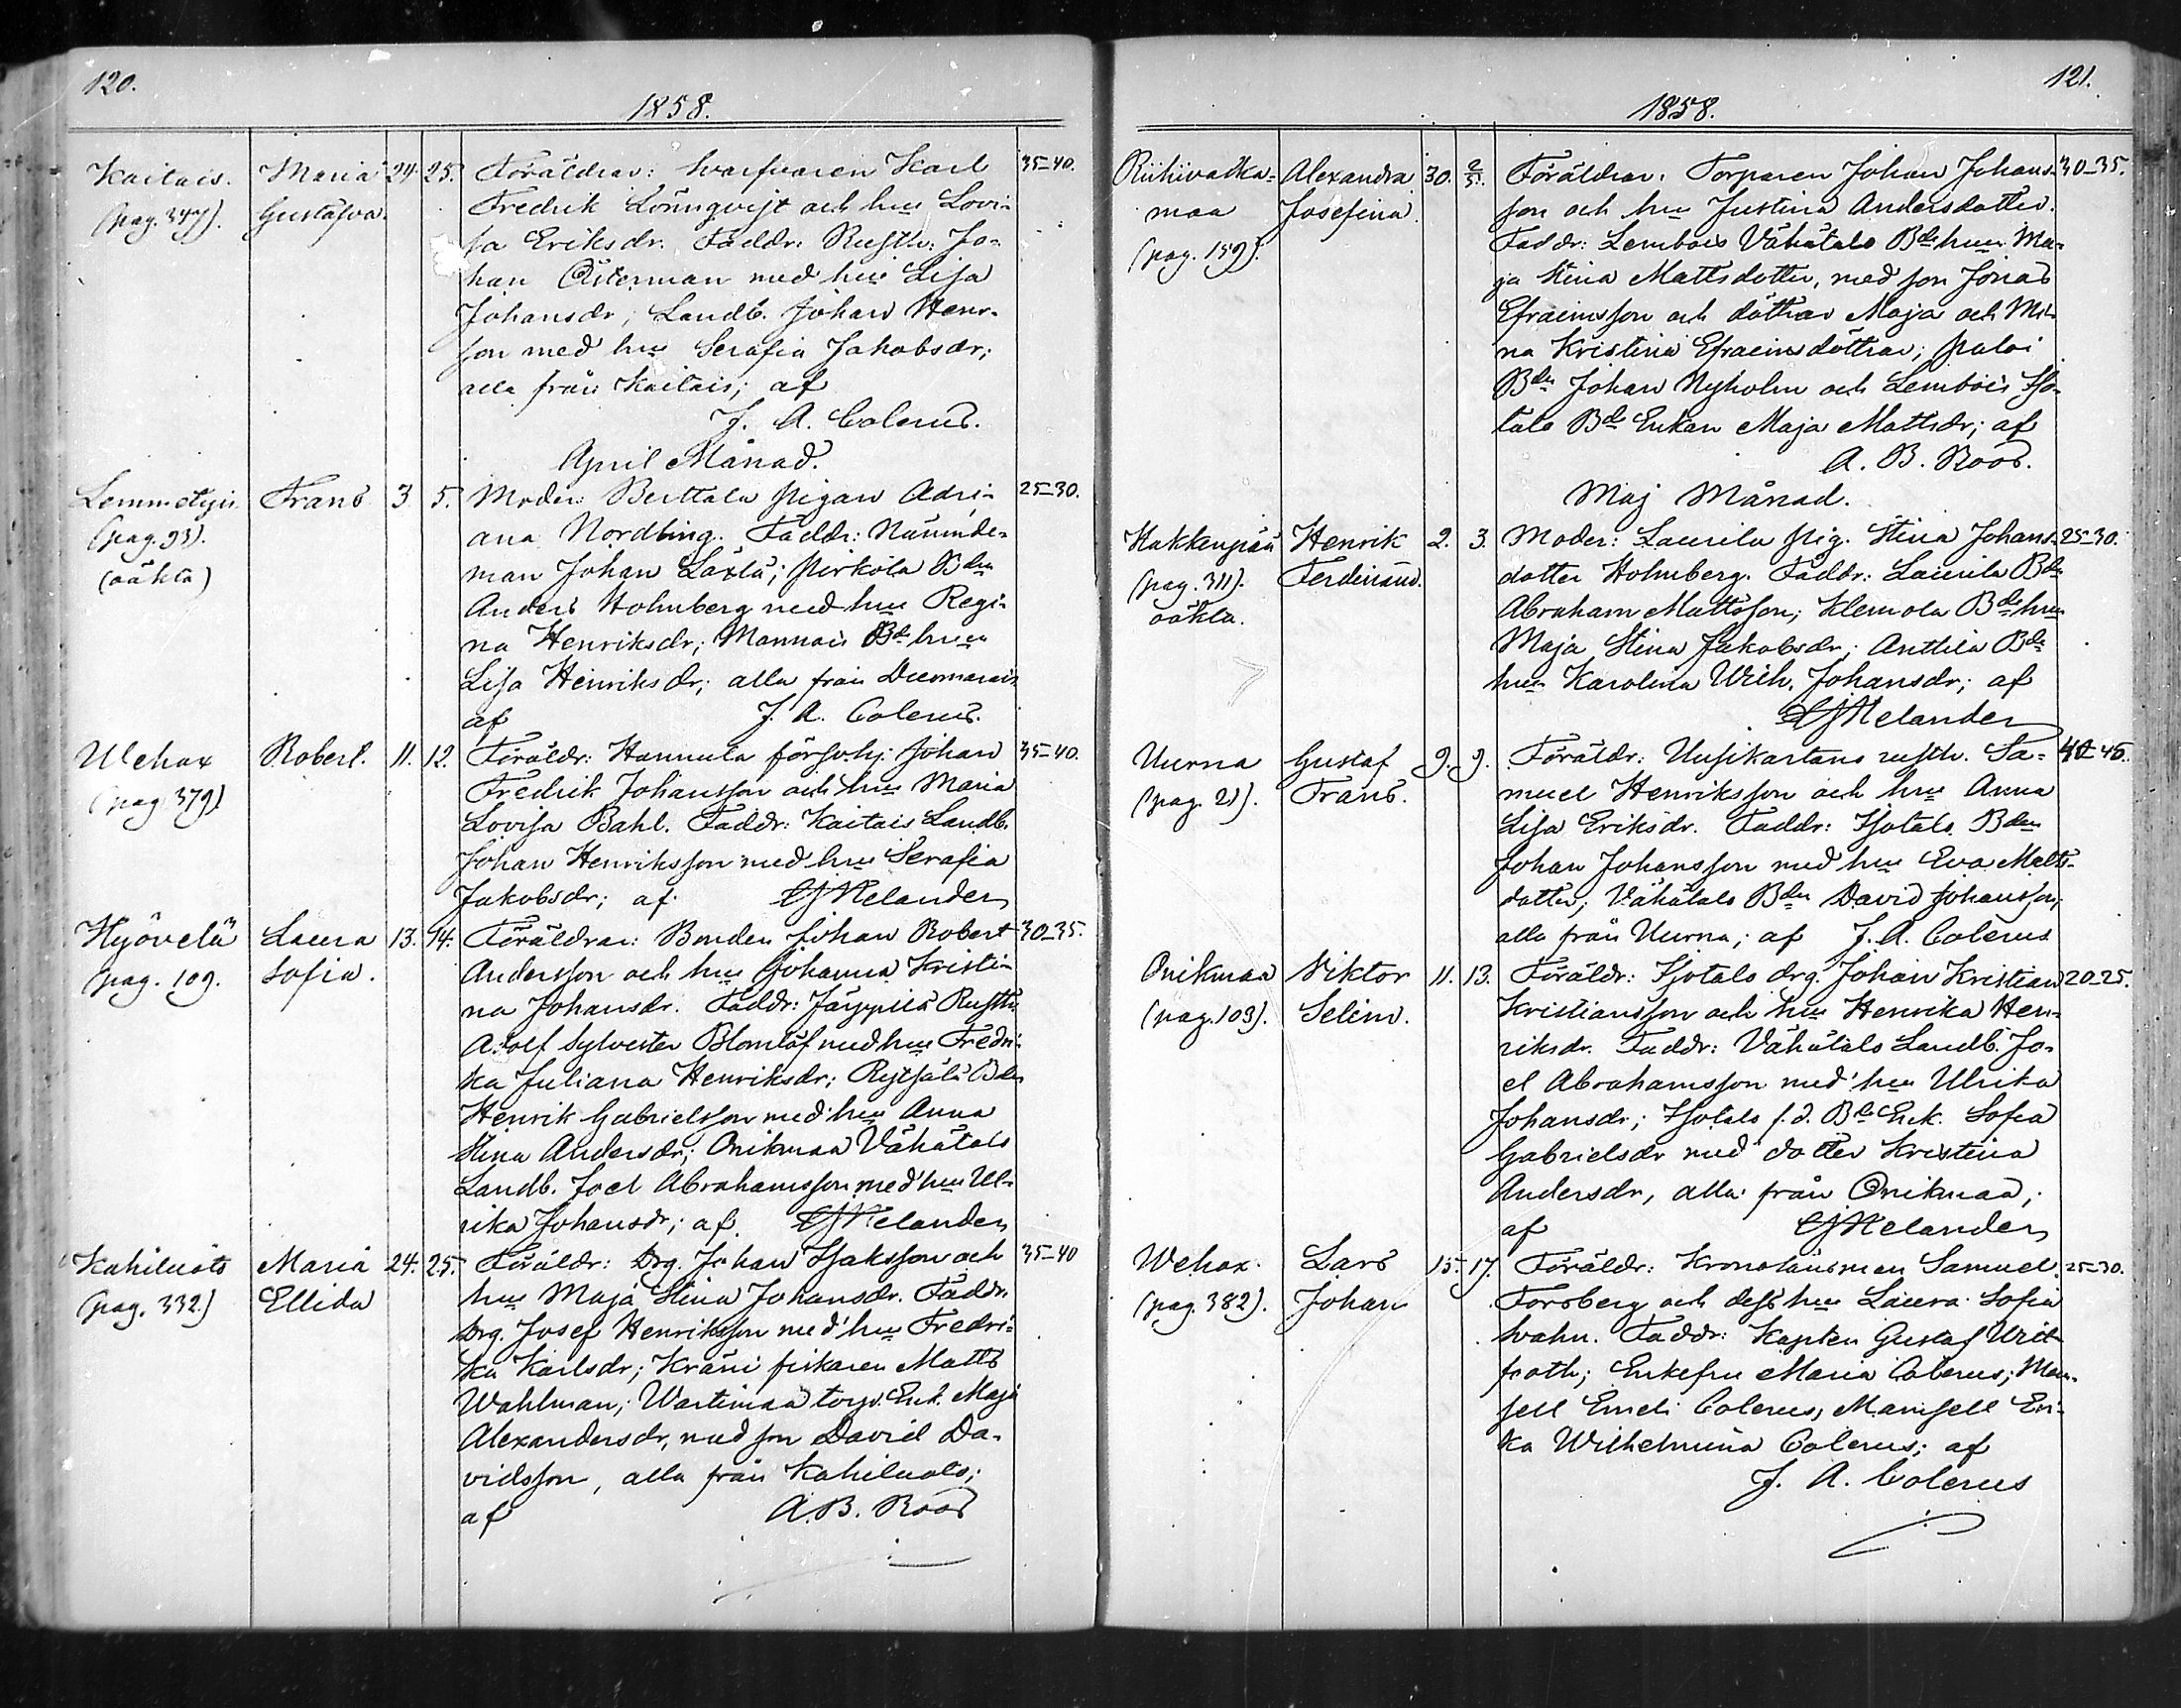 120.
1858.
Kaitais. Maria 24. 25. Föräldrar: Svarfvaren Karl 35-40.
(pag. 347). Gustafva. Fredrik Lönnqvist och hu Lovi-
sa Eriksdr. Faddr: Rusth. Jo-
han Österman med hu Lisa
Johansdr; Landb. Johan Henr.
son med hu Serafia Jakobsdr;
alla från Kaitais; af
J. A. Colerus.
April Månad.
Lemmetyis Frans 3. 5. Moder: Berttala pigan Adri- 25-30.
(pag. 93). ana Nordling. Faddr: Nämnde-
(oäkta) man Johan Laxla; Pirkola Bdn
Anders Holmberg med hu Regi-
na Henriksdr; Mannais Bde hun
Lisa Henriksdr; alla från
af J. A. Colerus.
Wehax Robert. 11. 12. Föräldr: Hannula Johan 35-40.
(pag. 379) Fredrik Johansson och hu Maria
Lovisa Bahl. Faddr: Kaitais Landb.
Johan Henriksson med hu Serafia
Jakobsdr; af Helander
Hyövelä Laura 13. 14. Föräldrar: Bonden Johan Robert 30-35.
(pag. 109. Sofia. Andersson och hu Johanna Kristi-
na Johansdr. Faddr: Järppilä Rusth.
Adolf Sylvester Blomlöf med hu Fredri-
ka Juliana Henriksdr; Rytsälä Bdn
Henrik Gabrielsson med hu Anna
Stina Andersdr; Onikmaa Vähätalo
Landb. Joel Abrahamsson med hu Ul-
rika Johansdr; af Helander
Kahiluoto Maria 24. 25. Föräldr: Drg. Johan Isaksson och 35-40
(pag. 332) Ellida hu Maja Stina Johansdr. Faddr.
Drg. Josef Henriksson med hu Fredri-
ka Karlsdr; Kräni fiskaren Matts
Wahlman; Wartimaa torp. Enk. Maja
Alexandersdr, med son David Da-
vidsson, alla från Kahiluoto;
af A. B. Roos
121.
1858.
Riihivalka- Alexandra 30. 2/5. Föräldrar: Torparen Johan Johans- 30-35.
maa Josefina. son och hu Justina Andersdotter.
(pag. 159). Faddr: Lembois Vähätalo Bde hun Ma-
ja Stina Mattsdotter, med son Jonas
Efraimsson och döttrar Maja och Mi-
na Kristina Efraimsdöttrar; Paloi
Bdn Johan Nyholm och Lembois Iso-
talo Bde Enkan Maja Mattsdr; af
A. B. Roos.
Maj Månad.
Kukkenpää Henrik 2. 3. Moder: Laurila pig. Stina Johans- 25-30.
(pag. 311). Ferdinand. dotter Holmberg. Faddr: Laurila Bdn
oäkta. Abraham Mattsson; Klemola Bde hun
Maja Stina Jakobsdr; Anttila Bde
hun Karolina Wilh. Johansdr; af
Helander
Uurna Gustaf 9. 9. Föräldr: Uusikartano rusth. Sa- 40-45.
(pag. 21). Frans. muel Henriksson och hu Anna
Lisa Eriksdr. Faddr: Isotalo Bdn
Johan Johansson med hu Eva Matts-
dotter; Vähätalo Bdn David Johansson;
alla från Uurna; af J. A. Colerus
Onikmaa Viktor 11. 13. Föräldr: Isotalo drg. Johan Kristian 20-25.
(pag. 103). Selim. Kristiansson och hu Henrika Hen-
riksdr. Faddr: Vähätalo Landb. Jo-
el Abrahamsson med hu Ulrika
Johansdr; Isotalo f.d. Bde Enk. Sofia
Gabrielsdr med dotter Kristina
Andersdr, alla från Onikmaa;
af Helander
Wehax Lars 15. 17. Föräldr: Kronolänsman Samuel 25-30.
(pag. 382). Johan Forsberg och dess hu Laura Sofia
Svahn. Faddr: Kapten Gustaf
Enkefru Maria Colerus; Mam-
sell Emeli Colerus, Mamsell Eri-
ka Wilhelmina Colerus; af
J. A. Colerus